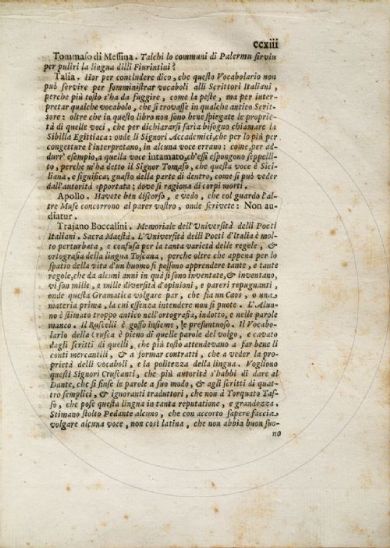 ccxiii
Tommaso di Messina. Talchi lo communi di Palermu sirviu
per puliri la lingua dilli Fiurintini?
Talia. Hor per concludere dico, che questo Vocabolario non
può servire per somministrar vocaboli alli Scrittori Italiani,
perche più tosto s'ha da fuggire, come la peste, ma per inter-
pretar qualche vocabolo, che si trovasse in qualche antico Scrit-
tore: oltre che in questo libro non sono bene spiegate le proprie-
tà di quelle voci, che per dichiararsi saria bisogno chiamare la
Sibilla Egittiaca: onde li Signori Accademici, che per lo più per
congetture l'interpretano, in alcuna voce errano: come, per ad-
durr' esempio, a quella voce intamato, ch'essi espongono seppelli-
to, perche m'ha detto il Signor Tomaso, che questa voce è Sici-
liana, e significa, guasto della parte di dentro, come si può veder
dall'autorità apportata: dove si ragiona di corpi morti.
Apollo. Havete ben discorso, e vedo, che col guardo l'al-
tre Muse concorrono al parer vostro, onde scrivete: Non au-
diatur.
Trajano Boccalini. Memoriale dell'Università delli Poeti
Italiani. Sacra Maestà. L'Università delli Poeti d'Italia è mol-
to perturbata, e confusa per la tanta varietà delle regole, &
ortografia della lingua Toscana, perche oltre che appena per lo
spatio della vita d'un huomo si possono apprendere tante, e tante
regole, che da alcuni anni in quà si sono inventate, & inventano,
vi son mille, e mille diversità d'opinioni, e pareri repugnanti,
onde questa Gramatica volgare par, che sia un Caos, o una
materia prima, la cui essenza intendere non si puote. L'Alun-
no è stimato troppo antico nell'ortografia, indotto, e nelle parole
manco. Il Ruscelli è gosso insieme, e presuntuoso. Il Vocabo-
lario della Crusca è pieno di quelle parole del volgo, e cavato
dagli scritti di quelli, che più tosto attendevano a far bene li
conti mercantili, & a formar contratti, che a veder la pro-
prietà delli vocaboli, e la politezza della lingua. Vogliono
questi Signori Cruscanti, che più autorità s'habbi di dare al
Dante, che si finse in parole a suo modo, & agli scritti di quat-
tro semplici, & ignoranti traduttori, che non à Torquato Tas-
so, che pose questa lingua in tanta reputatione, e grandezza.
Stimano stolto Pedante alcuno, che con accorto sapere faccia
volgare alcuna voce, non così latina, che non abbia buon suo-
no